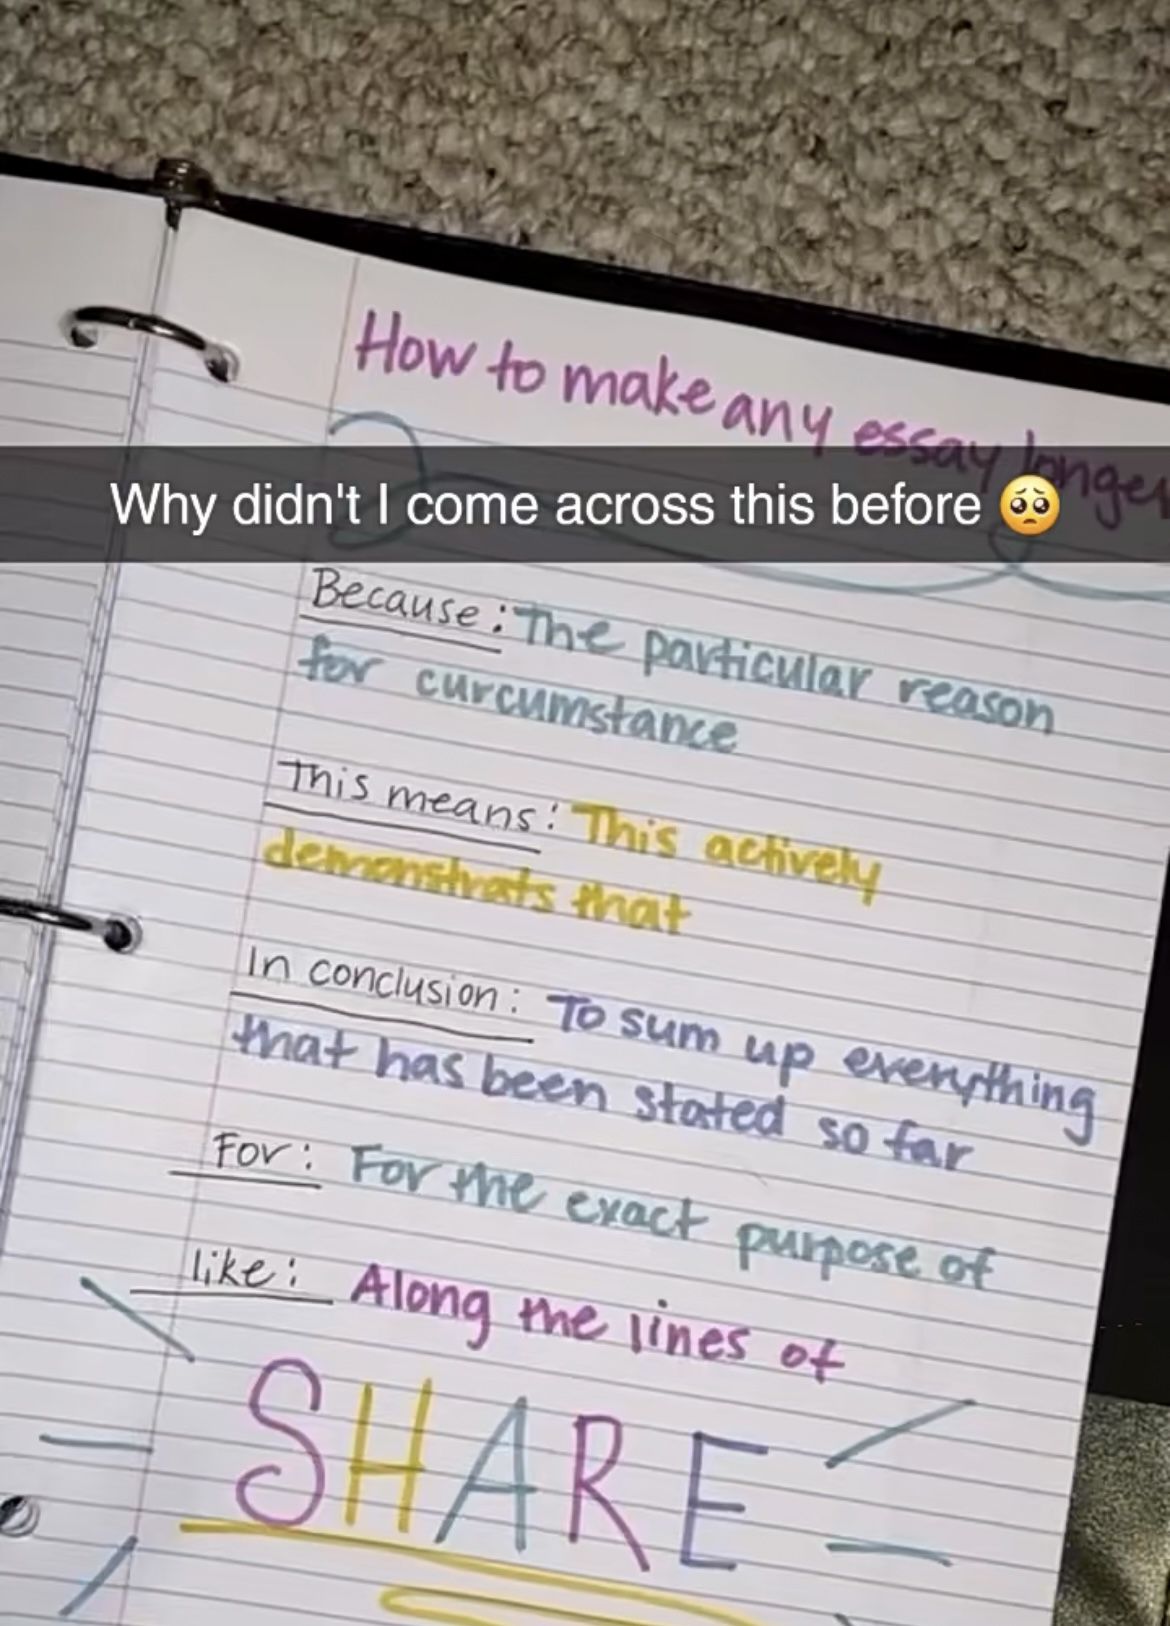 How to make any essay longer
Why didn't I come across this before 🥺
Because: The particular reason
for curcumstance
This means: This actively
demonstrats that
In conclusion: To sum up everything
that has been stated so far
For: For the exact purpose of
like: Along the lines of
SHARE